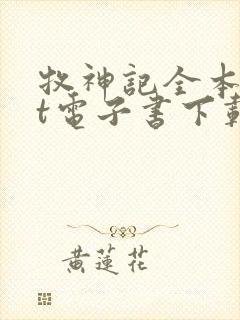 牧神記全本
t電子書下載
黃蓮花